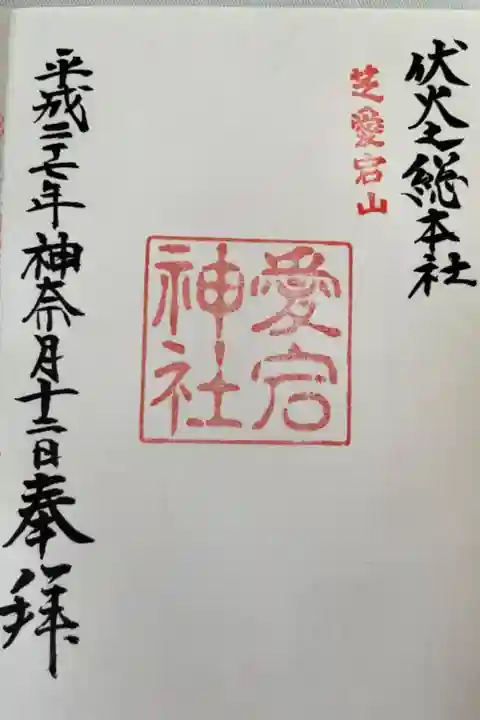 伏火之総本社
芝愛宕山
愛宕
神社
平成二十七年神奈月十二日奉拝